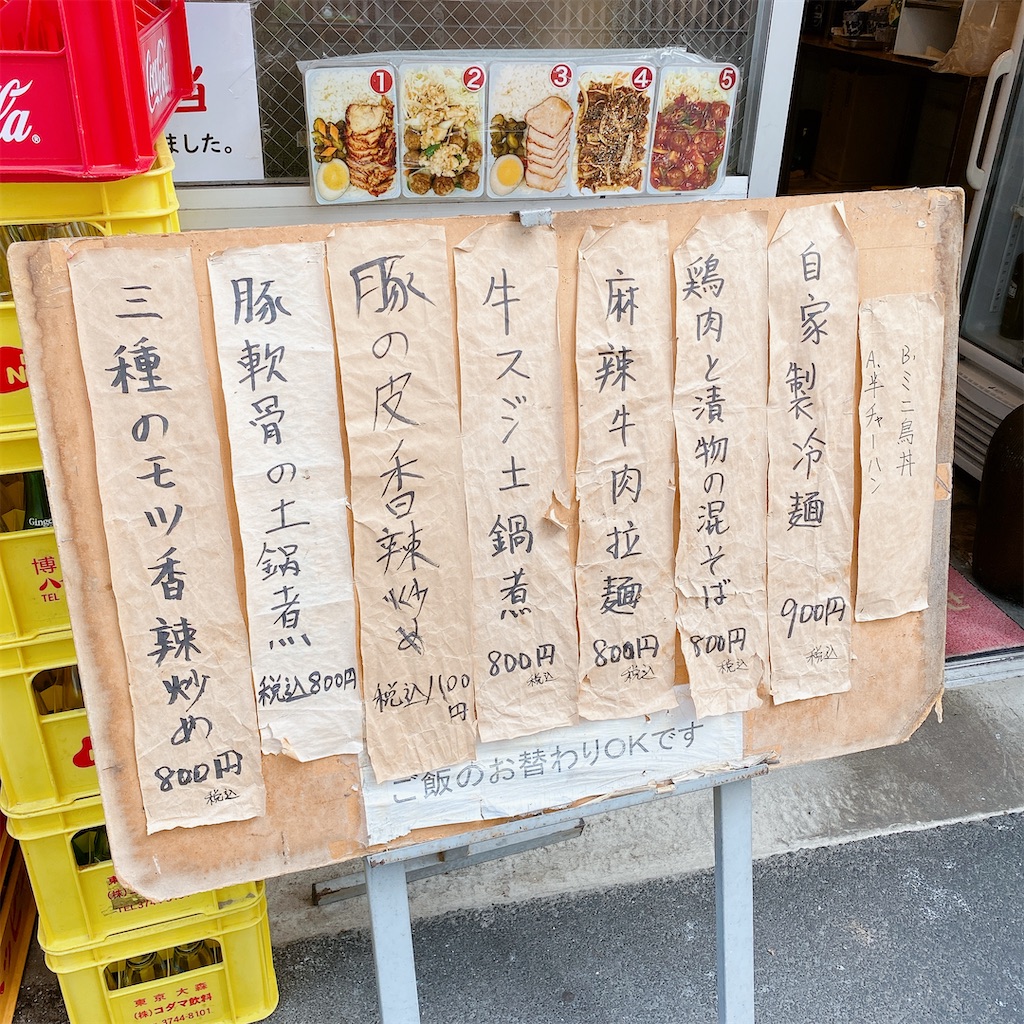 Coca-Cola
ました。
1
2
3
4
5
B.ミニ鳥丼
A.半チャーハン
自家製冷麺
900円
税込
鶏肉と漬物の混そば
800円
税込
麻辣牛肉拉麺
800円
税込
牛スジ土鍋煮
800円
税込
豚の皮香辣炒め
税込1100
円
豚軟骨の土鍋煮
税込800円
三種のモツ香辣炒め
800円
税込
ご飯のお替わりOKです
東京大森
(株)コダマ飲料
3744-8101